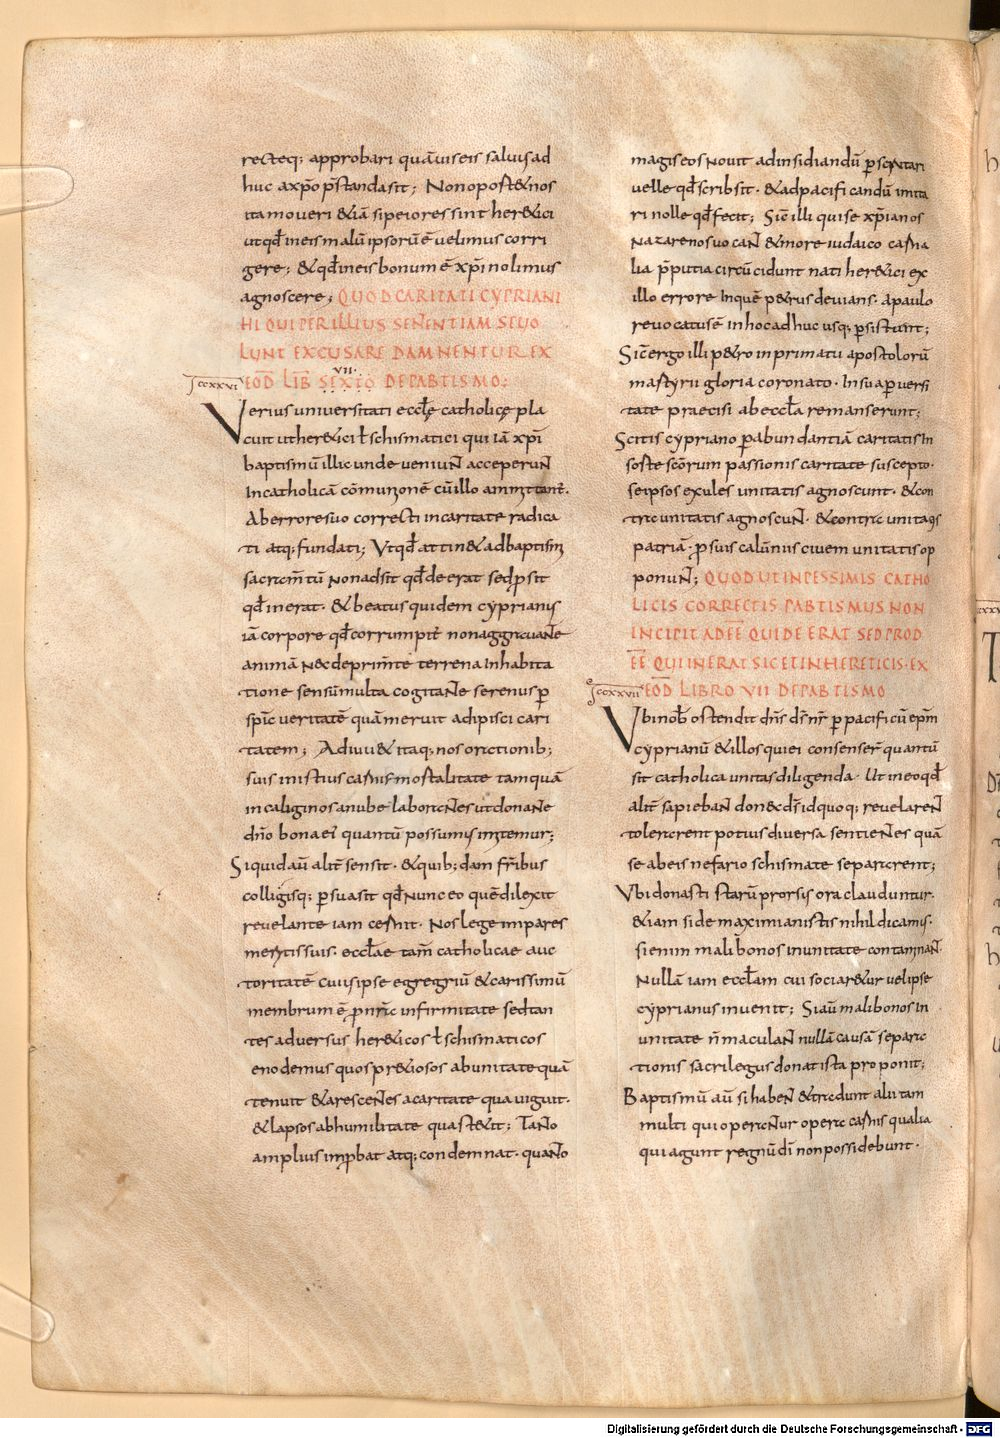 recteq; approbari quāuiseis saluisad
huc axp̄o p̄standasit; Nonopost&nos
itamoueri &iā sipeioressint her&ici
utqđ ineis malū ipsorū ē uelimus corri
gere; &qđineis bonum ē xp̄i nolimus
agnoscere; QUOD CARITATI CYPRIANI
HI QUI PER ILLIUS SENENTIAM SE UO
LUNT EXCUSARE DAMNENTUR EX
VII
CCXXVI EOD LIB SIXTO DE BABTISMO:
Verius uniuersitati eccłę catholicę pla
cuit uther&ici ł schismatici qui iā xp̄i
baptismū illic unde ueniuN acceperuN
Incatholicā cōmunionē cū illo ammittant.
Aberroresuo correcti incaritate radica
ti atq; fundati; Utqđ attin& adbaptismi
sacrm̄tū Nonadsit qđ deerat sed p̄sit
qđ inerat. &beatus quidem cyprianus
iā corpore qđ corrumpit̄ nonaggrauaNte
animā Nec deprimente terrena Inhabita
tione sensūmulta cogitaNte serenus p
spic̄ ueritatē quāmeruit adipisci cari
tatem; Adiuu& itaq; nos orationib;
suis inistius carnis mortalitate tamquā
incaliginosa nube laboraNtes utdonaNte
dn̄o bona ei quantū possumus imitemur;
Siquidaū alit̄ sensit. &quib;dam fr̄ibus
colligisq; p̄suasit qđ Nunc eo quē dilexit
reuelante iam cernit. Nos lege impares
meritis suis. eccłae tam̄ catholicae auc
toritatē cuius ipse egregiū &carissimū
membrum ē p nr̄a infirmitate sectan
tes aduersus her&icos ł schismaticos
enodemus quos pr&iosos abunitate quā
tenuit &aresceNtes acaritate qua uiguit.
&lapsos abhumilitate qua st&it; TaNto
amplius improbat atq; condemnat. quaNto
magis eos Nouit adinsidiandū p̄scrutari
uelle qđ scribsit. &adpacificandū imita
ri nolle qđ fecit; Sic̄ illi qui se xp̄ianos
Nazarenos uocaN &more iudaico carna
lia p̄putia circūcidunt nati her&ici ex
illo errore Inquē p&rus deuians. apaulo
reuocatus ē inhoc adhuc usq; p̄sistunt;
Sic̄ ergo illi p&ro in primatu apostolorū
martyrii gloria coronato. Insua peruersi
tate praecisi abeccła remanserunt;
Scitis cypriano p̄ abundantiā caritatis in
sorte sc̄orum passionis caritate suscepto.
seipsos exules unitatis agnoscunt. &con
tra unitatis agnoscuN. &contra unitatis
patriā. p̄ suis calūnīis ciuem unitatis op
ponuN; QUOD UT IN PESSIMIS CATHO
LICIS CORRECTIS BABTISMUS NON
INCIPIT ADEE QUI DEERAT SED PROD
EE QUI INERAT SIC ET IN HERETICIS. EX
CCXXVII EOD LIBRO VII DE BABTISMO
Ubi nob̄ ostendit dn̄s ds̄ nr̄ p pacificū ep̄m
cyprianū &illos qui ei consenser̄ quantū
sit catholica unitas diligenda. Ut in eo qđ
alit̄ sapiebaN donec ds̄ id quoq; reuelareN
tolerarent potius diuersa sentieNtes quā
se abeis nefario schismate separarent;
Ubi donastistarū prorsis ora clauduntur.
&iam si de maximianistis nihil dicamus.
si enim mali bonos inunitate contaminaN.
Nullā iam eccłam cui sociar&ur uel ipse
cyprianus inuenit; Siaū mali bonos in
unitate n̄ maculaN nullā causā separa
tionis sacrilegus donatista proponit;
Baptismū aū si habeN &tradunt alii tam
multi qui operaNtur opera carnis qualia
qui agunt regnū di non possidebunt.
Digitalisierung gefördert durch die Deutsche Forschungsgemeinschaft - DFG